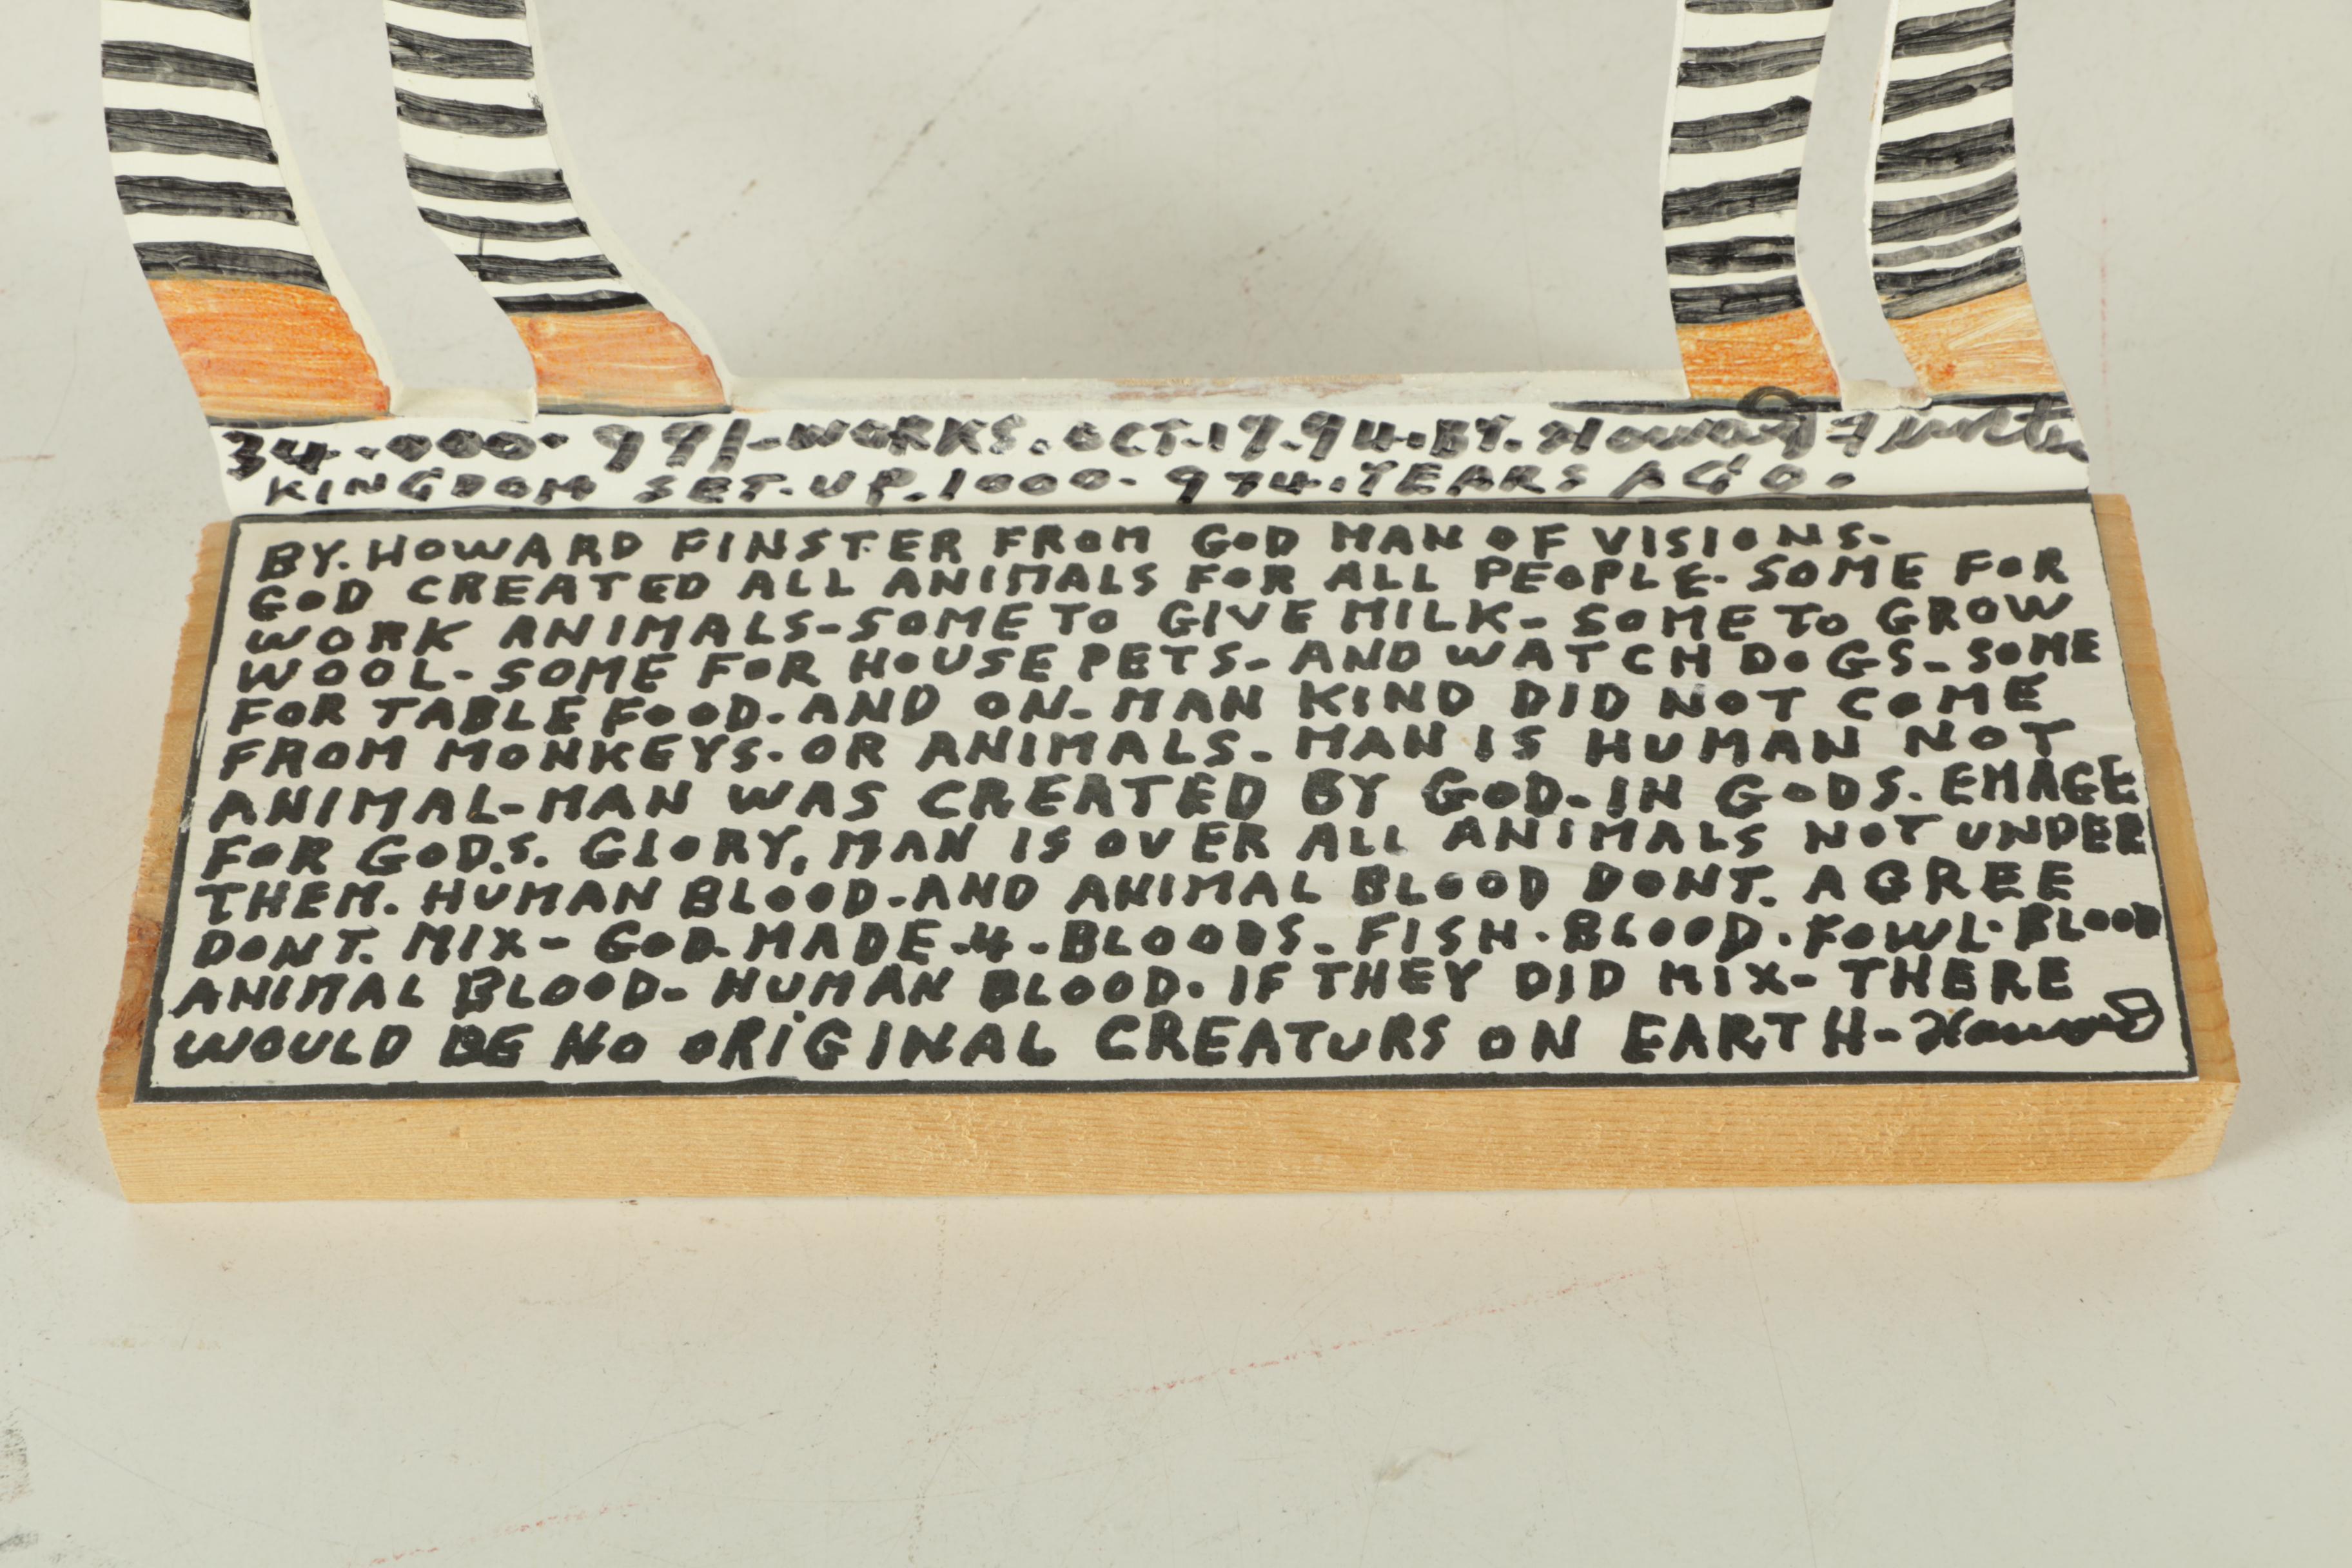 34.000.991-WORKS. OCT.17.94.BY. Howard Finster
KINGDOM SET.UP. 1000-974.YEARS AGO.
BY. HOWARD FINSTER FROM GOD MAN OF VISIONS.
GOD CREATED ALL ANIMALS FOR ALL PEOPLE. SOME FOR
WORK ANIMALS-SOME TO GIVE MILK- SOME TO GROW
WOOL- SOME FOR HOUSE PETS- AND WATCH DOGS- SOME
FOR TABLE FOOD. AND ON- MAN KIND DID NOT COME
FROM MONKEYS. OR ANIMALS- MAN IS HUMAN NOT
ANIMAL-MAN WAS CREATED BY GOD- IN GODS. EMAGE
FOR GOD.S. GLORY, MAN IS OVER ALL ANIMALS NOT UNDER
THEM. HUMAN BLOOD-AND ANIMAL BLOOD DONT. AGREE
DONT. MIX- GOD-MADE-4-BLOODS- FISH. BLOOD. FOWL. BLOOD
ANIMAL BLOOD- HUMAN BLOOD. IF THEY DID MIX- THERE
WOULD BE NO ORIGINAL CREATURS ON EARTH- Howard